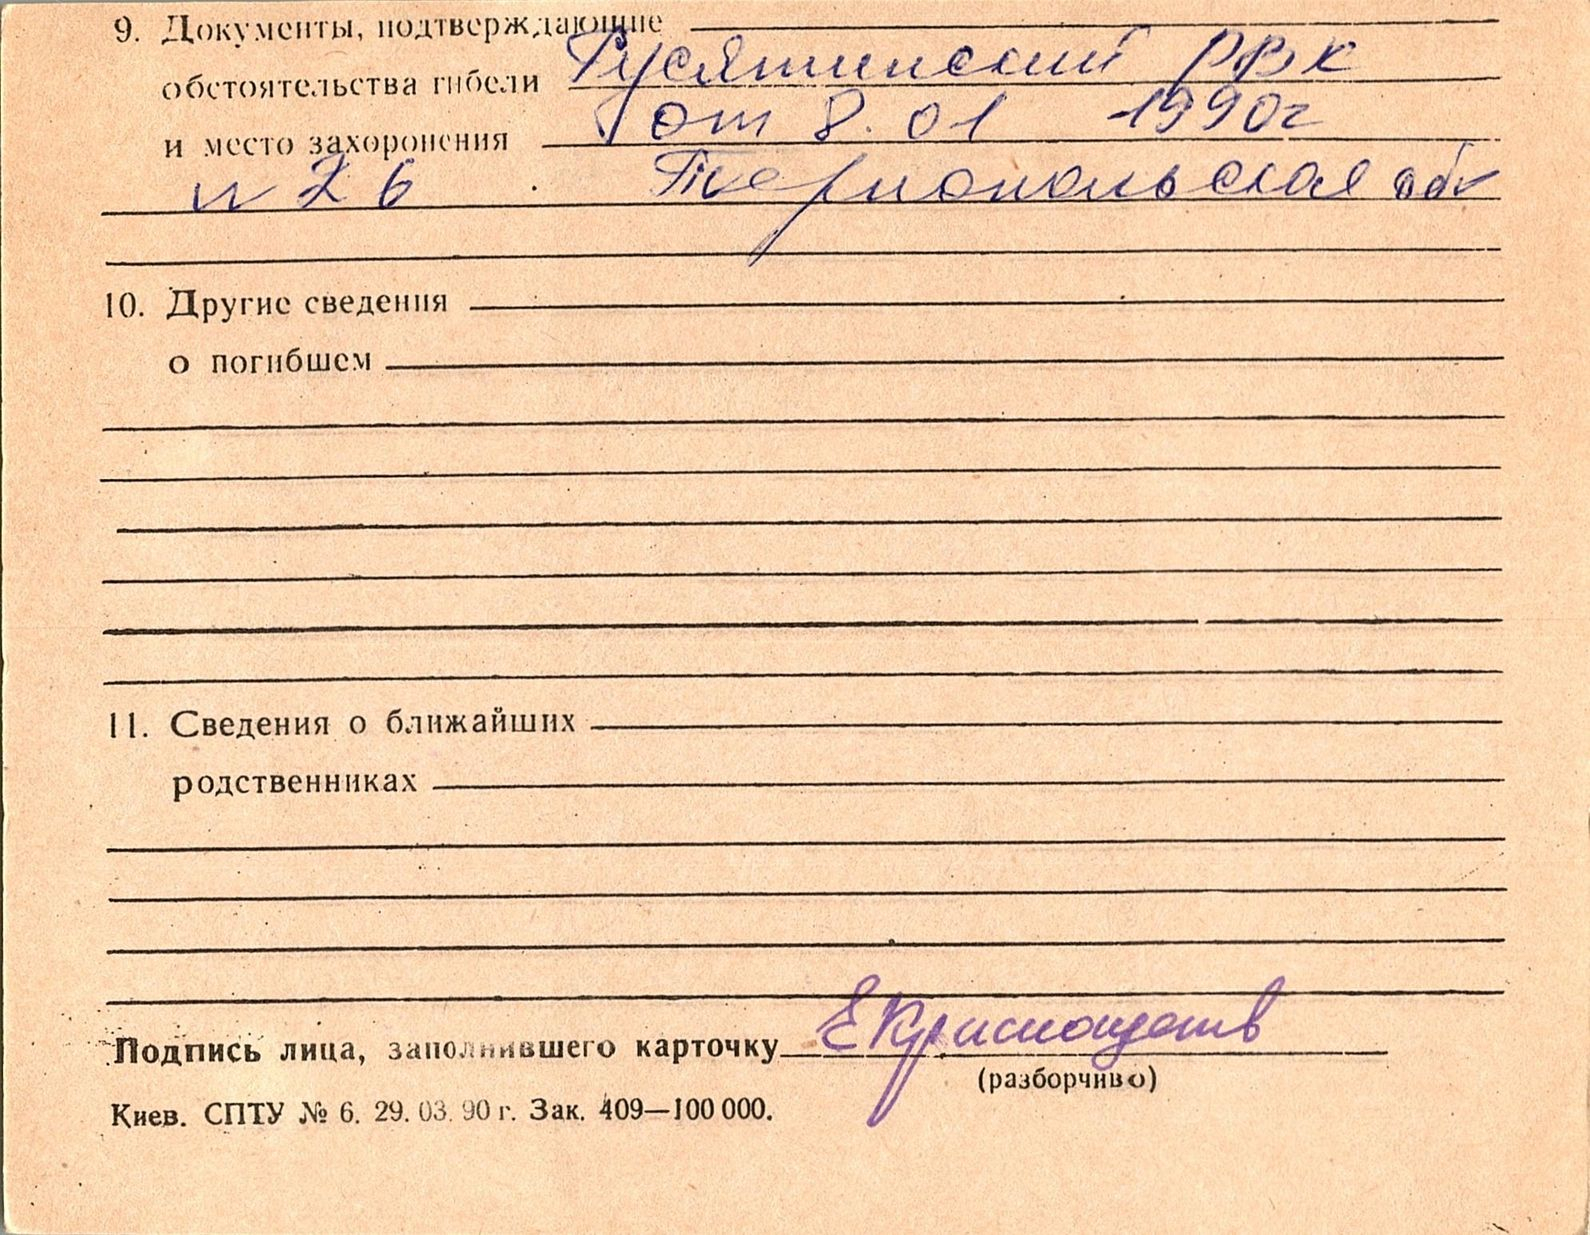 9. Документы, подтверждающие
обстоятельства гибели Гусятинский РВК
и место захоронения от 8.01 1990г
N 26 Тернопольская обл
10. Другие сведения
о погибшем
11. Сведения о ближайших
родственниках
Подпись лица, заполнившего карточку
(разборчиво)
Киев. СПТУ № 6. 29.03.90 г. Зак. 409—100 000.